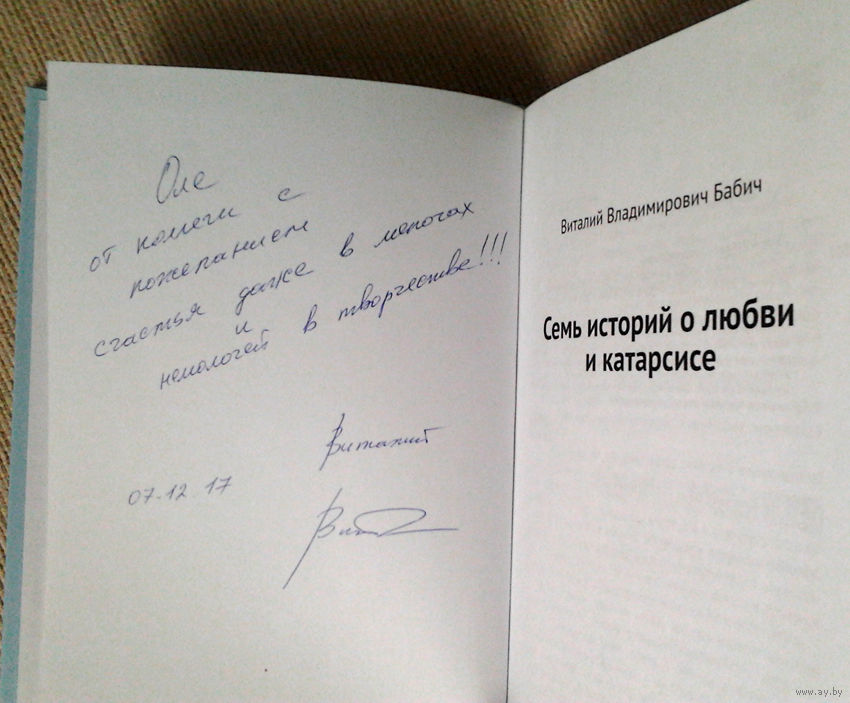 Оле
от коллеги с
пожеланием
счастья даже в мелочах
и
немелочей в творчестве!!!
Виталий
07.12.17
Виталий Владимирович Бабич
Семь историй о любви
и катарсисе
www.ay.by